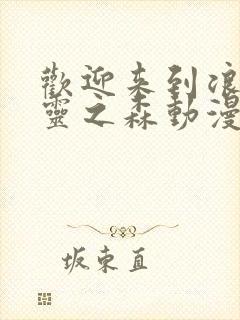 歡迎来到浪
靈之森動漫
坂東直